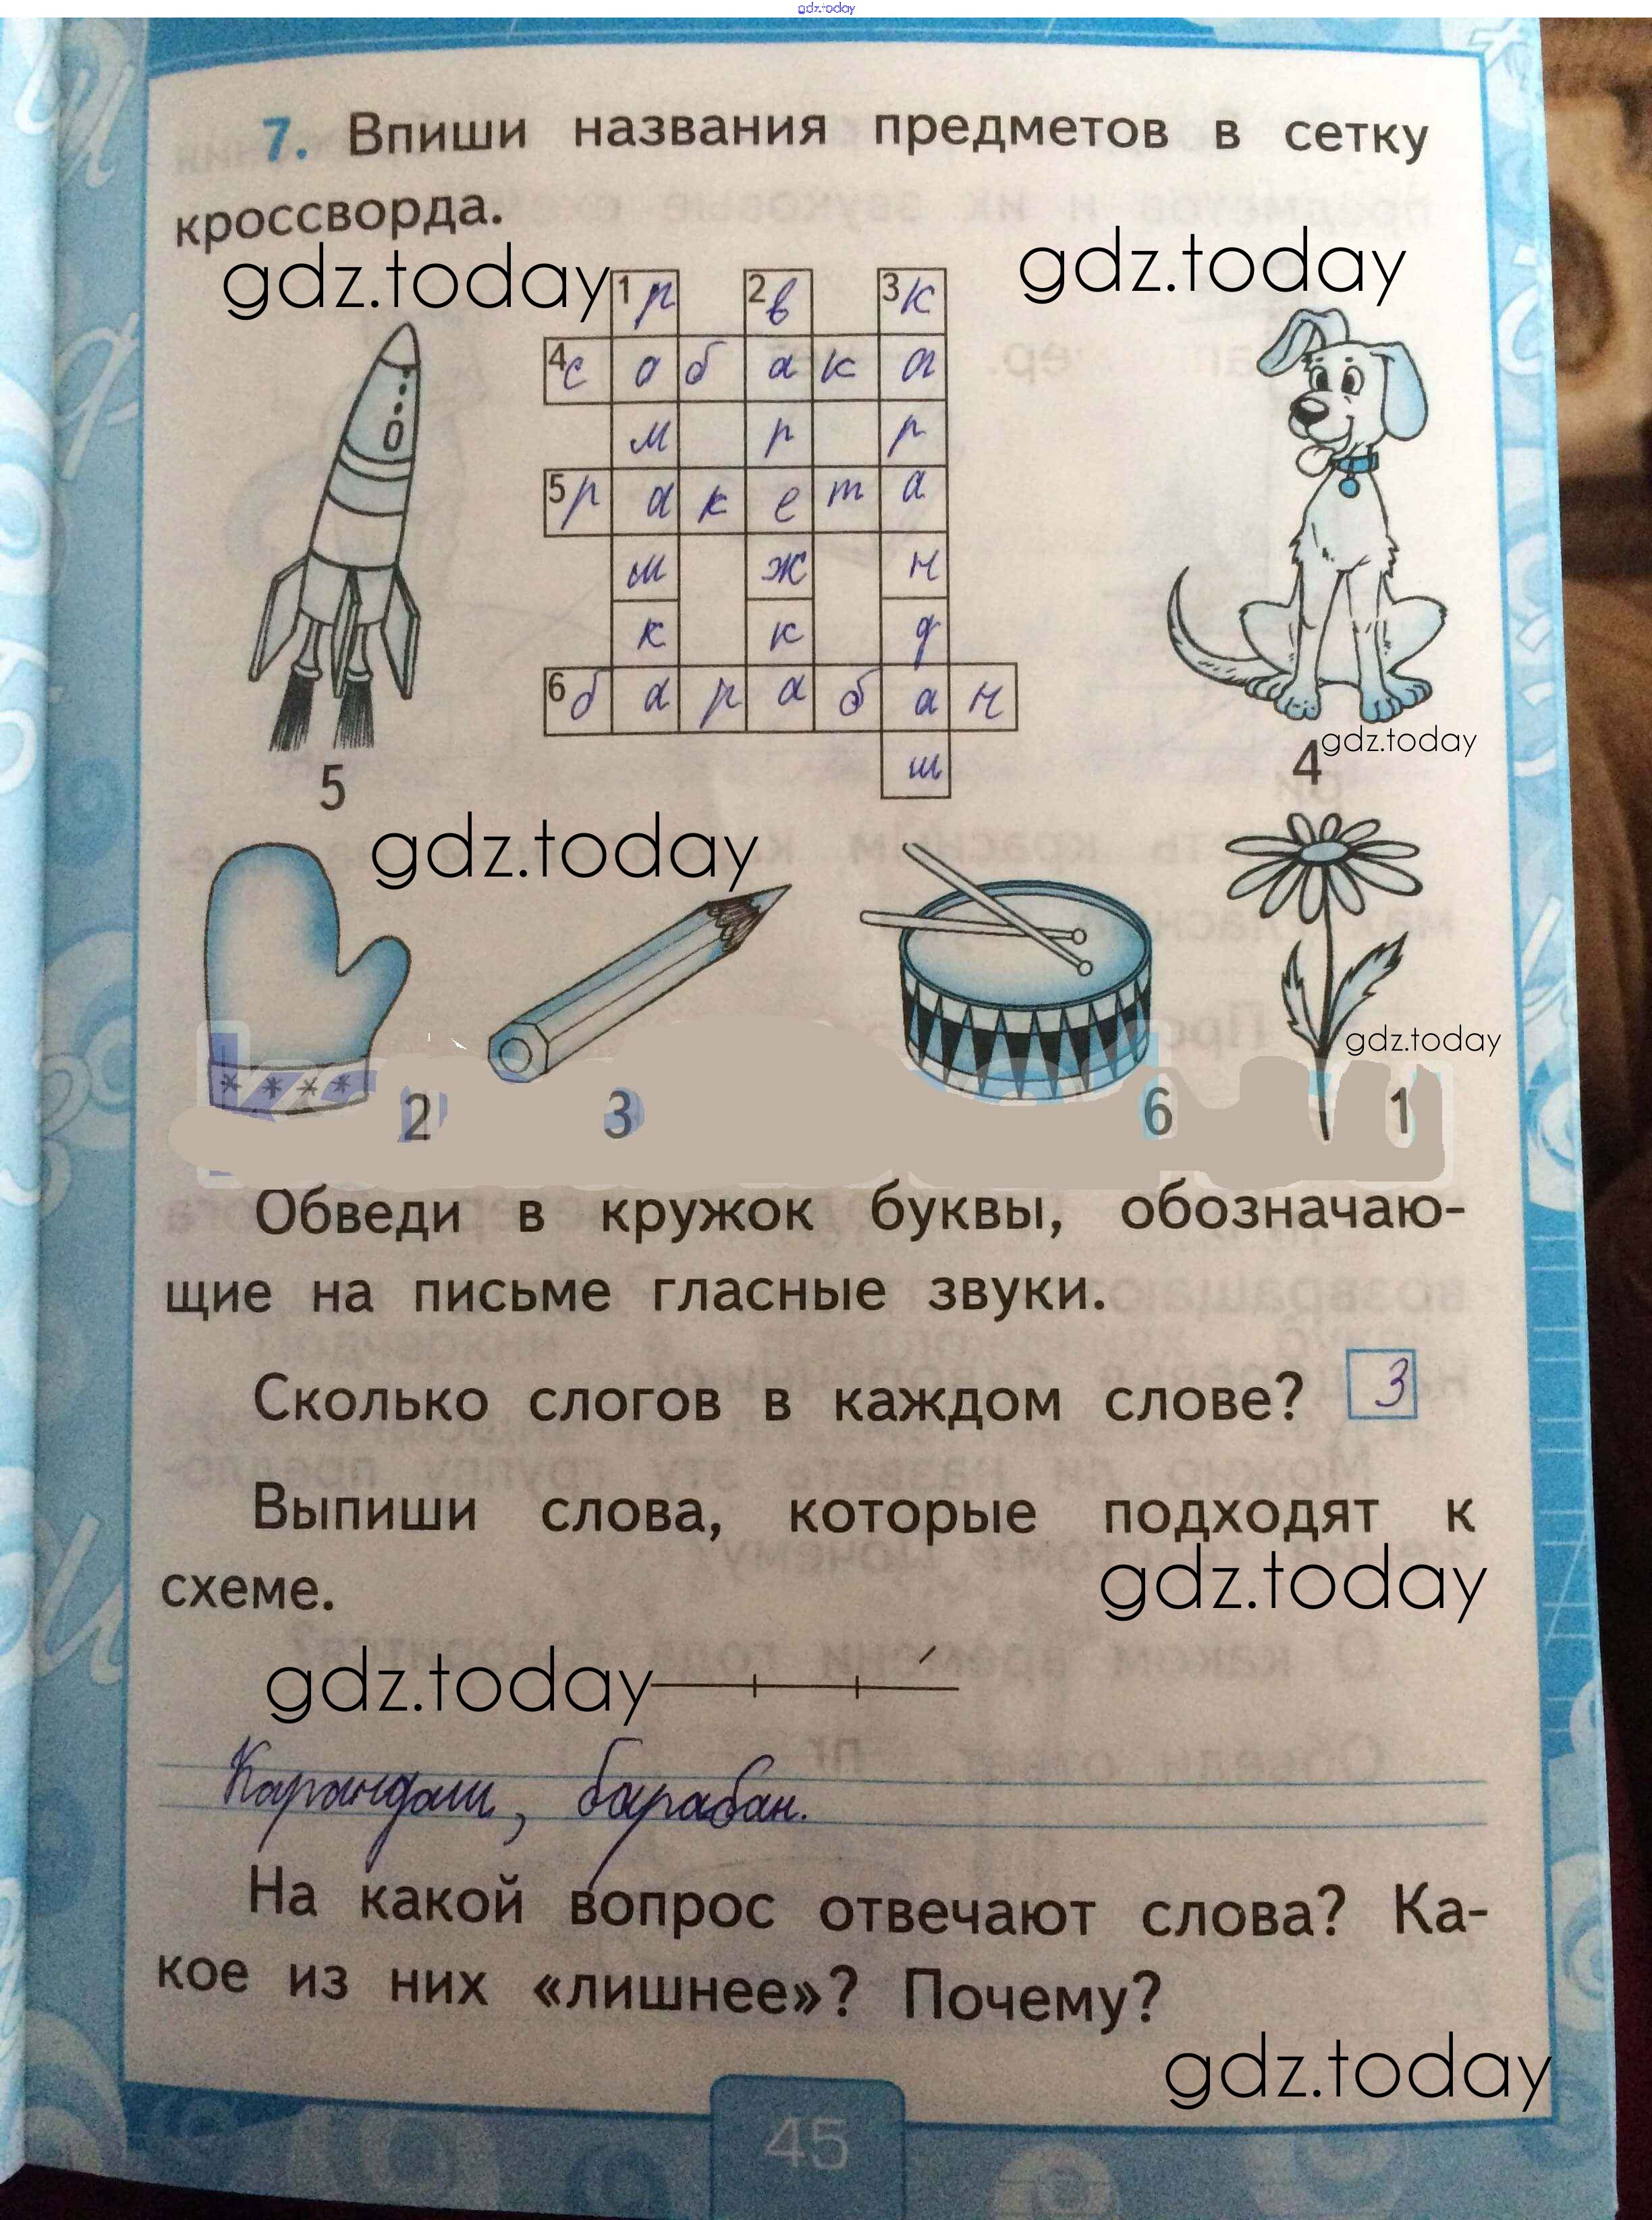 gdz.today
7. Впиши названия предметов в сетку
кроссворда.
gdz.today
gdz.today
1р 2в 3к
4собака
м р р
5ракета
ш ж н
к к д
6барабан
ш
gdz.today
5
4
gdz.today
gdz.today
2
3
6
1
Обведи в кружок буквы, обозначаю-
щие на письме гласные звуки.
Сколько слогов в каждом слове? 3
Выпиши слова, которые подходят к
схеме.
gdz.today
gdz.today
Карандаш, барабан.
На какой вопрос отвечают слова? Ка-
кое из них «лишнее»? Почему?
gdz.today
45